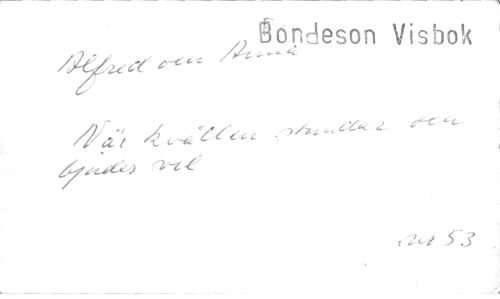 Bondeson Visbok
Alfred och Anna
När kvällen stundar och
bjuder vil
nr 53